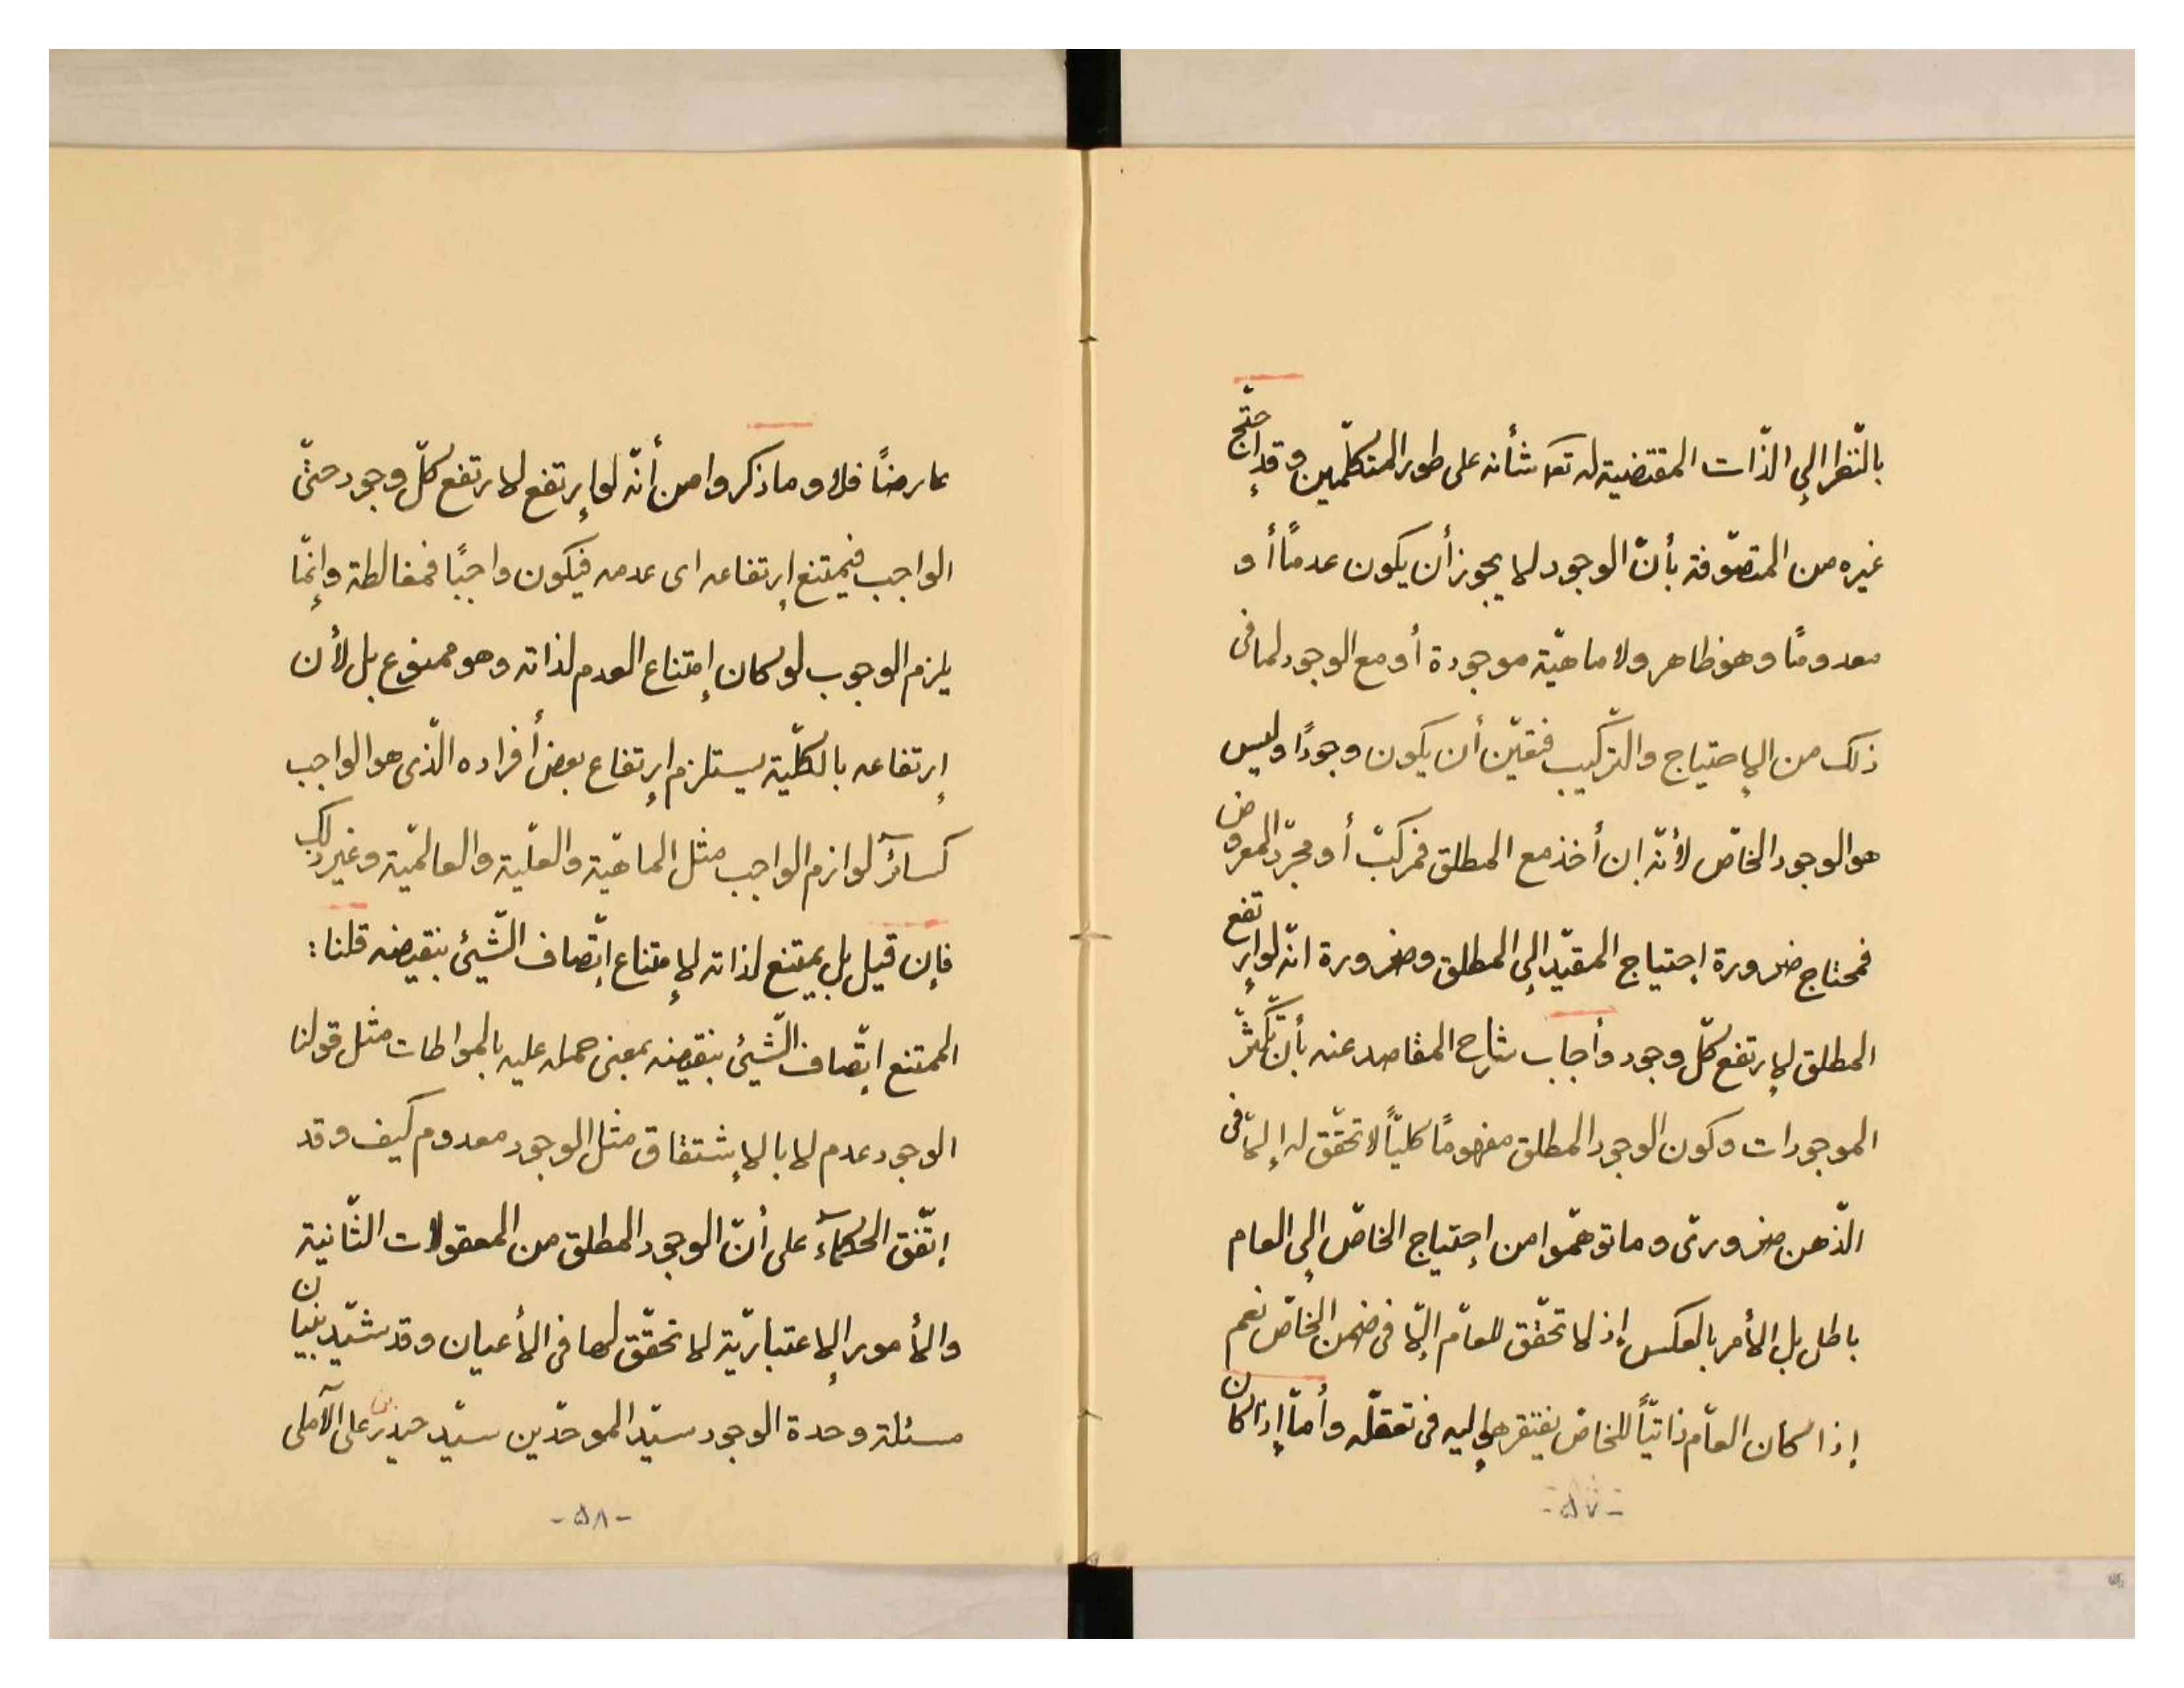 بالنّظر إلى الذّات المقتضية له تعالى شأنه على طور المتكلّمين وقد إحتجّ
غيره من المتصوّفة بأنّ الوجود لا يجوز أن يكون عدمًا أو
معدومًا وهو ظاهر ولا ماهيّة موجودة أو مع الوجود لما فى
ذلك من الإحتياج والتّركيب فتعيّن أن يكون وجودًا وليس
هو الوجود الخاصّ لأنّه إن أخذ مع المطلق فمركّب أو مجرّد المعروض
فمحتاج ضرورة إحتياج المقيّد إلى المطلق وضرورة انّه لو إرتفع
المطلق لإرتفع كلّ وجود وأجاب شارح المقاصد عنه بأنّ تكثّر
الموجودات وكون الوجود المطلق مفهومًا كليّاً لا تحقّق له إلّا فى
الذّهن ضرورىّ وما توهّموا من إحتياج الخاصّ إلى العام
باطل بل الأمر بالعكس إذ لا تحقّق للعامّ إلّا فى ضمن الخاصّ نعم
إذا كان العامّ ذاتيّاً للخاصّ يفتقر هو إليه فى تعقّله وأمّا إذا كان
-٥٧-
عارضًا فلا وما ذكروا من أنّه لو إرتفع لارتفع كلّ وجود حتّى
الواجب فيمتنع إرتفاعه اى عدمه فيكون واجبًا فمغالطة وإنّما
يلزم الوجوب لو كان إمتناع العدم لذاته وهو ممنوع بل لأن
إرتفاعه بالكلّية يستلزم إرتفاع بعض أفراده الّذى هو الواجب
كسائر لوازم الواجب مثل الماهيّة والعلّية والعالميّة وغير ذلك
فإن قيل بل يمتنع لذاته لإمتناع إتّصاف الشّيئ بنقيضه قلنا:
الممتنع إتّصاف الشّيئ بنقيضه بمعنى حمله عليه بالمواطات مثل قولنا
الوجود عدم لا بالإشتقاق مثل الوجود معدوم كيف وقد
إتّفق الحكمآء على أنّ الوجود المطلق من المعقولات الثّانية
والأمور الإعتباريّة لا تحقّق لها فى الأعيان وقد شيّد بنيان
مسئلة وحدة الوجود سيّد الموحّدين سيّد حيدر بن على الآملى
-٥٨-